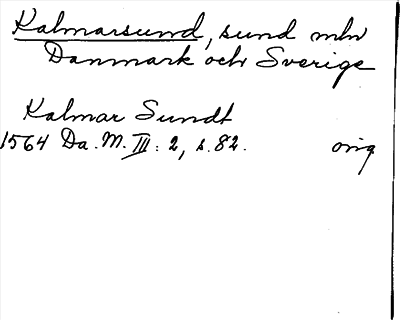 Kalmarsund, sund mln
Danmark och Sverige
Kalmar Sundt
1564 Da. M. III: 2, s. 82. orig